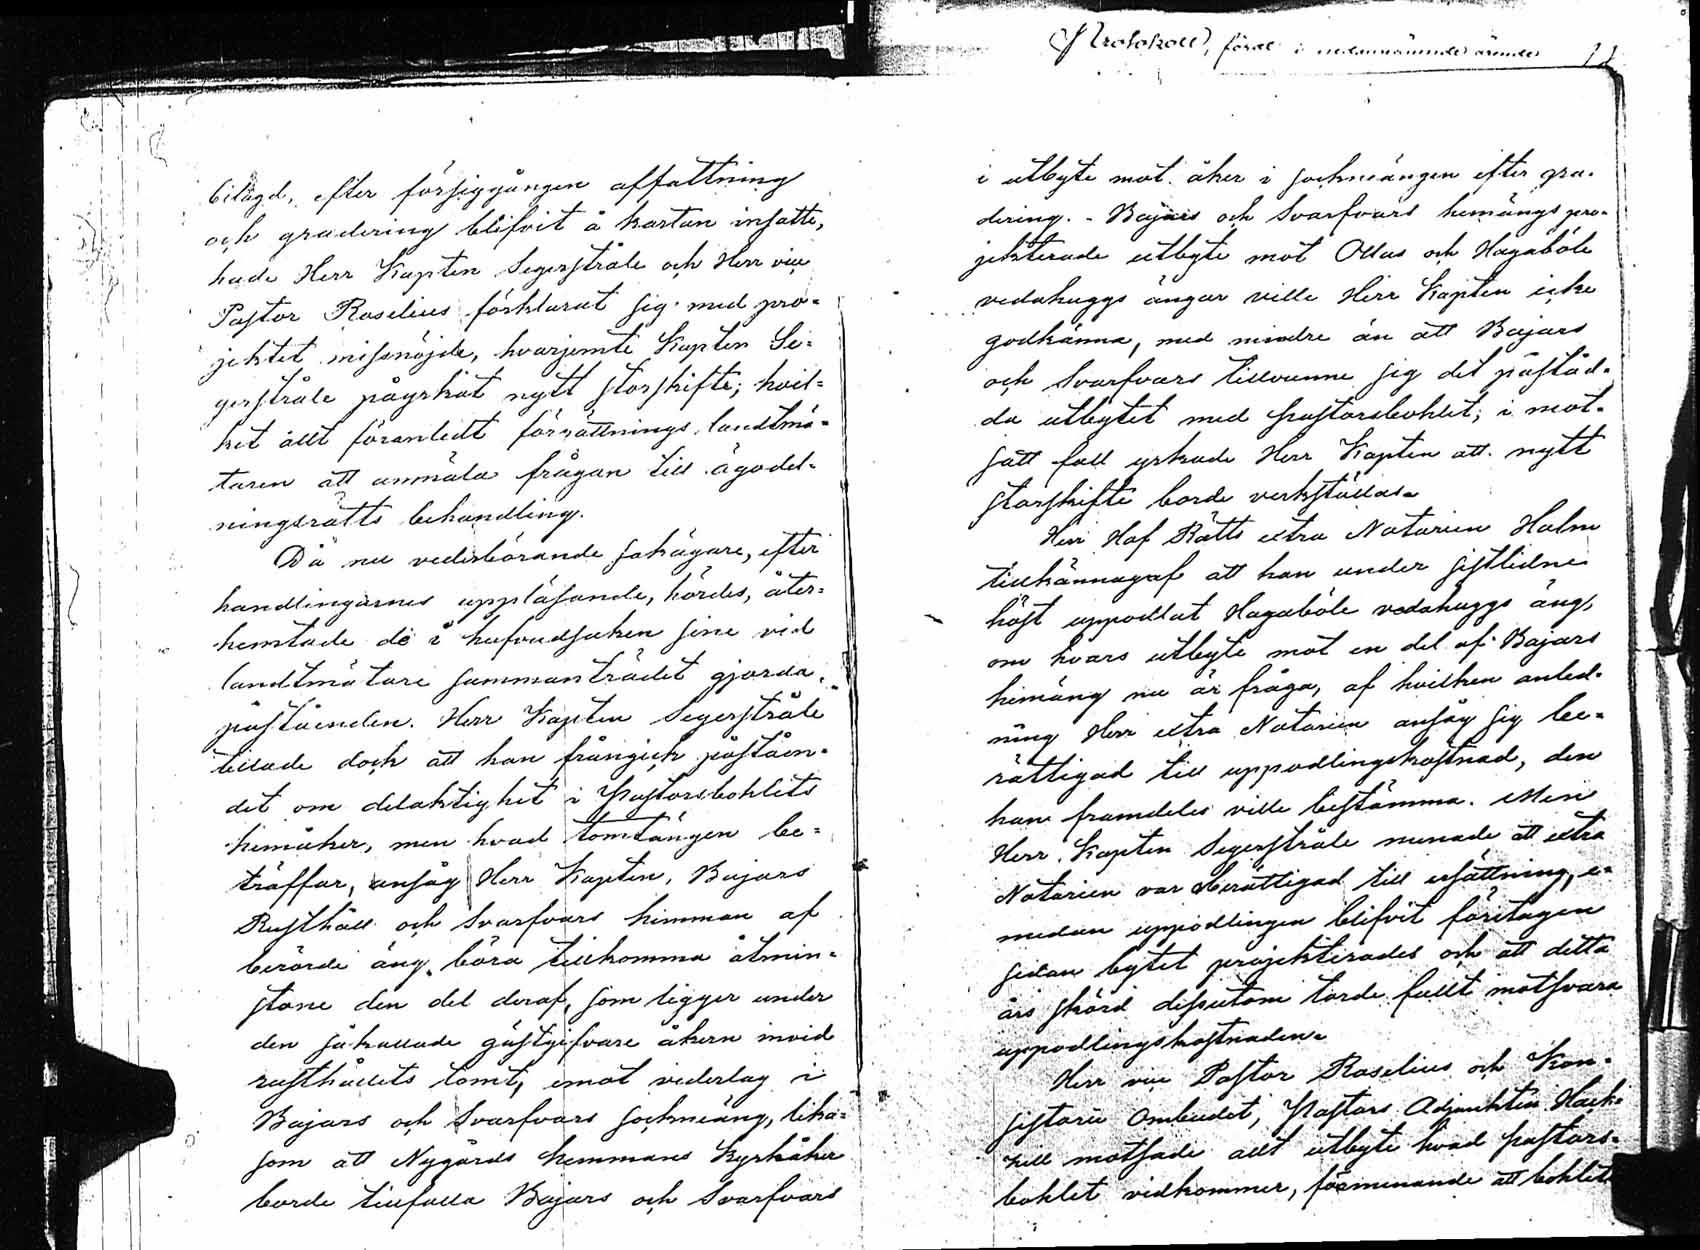 Protokoll, fördt i nedannämnde ärender
bilägd, efter försiggången affattning
och gradering blifvit å kartan insatte,
hade Herr Kapten Segerstråle och Herr vice
Pastor Roselius förklarat sig med pro-
jektet missnöjde, hvarjemte Kapten Se-
gerstråle påyrkat nytt storskifte; hvil-
ket allt föranledt förrättnings landtmä-
taren att anmäla frågan till ägodel-
ningsrätts behandling.
Då nu vederbörande sakägare, efter
handlingarnes uppläsande, hördes, åter-
hemtade de i hufvudsaken sine vid
landtmätare sammanträdet gjorda
påståenden. Herr Kapten Segerstråle
tillade dock att han frångick påståen-
det om delaktighet i Pastorsbohlets
hemåker, men hvad tomtängen be-
träffar, ansåg Herr Kapten, Bajars
Rusthåll och Svarfvars hemman af
berörde äng böra tillkomma åtmin-
stone den del deraf, som ligger under
den så kallade gästgifvare åkern invid
rusthållets tomt, emot vederlag i
Bajars och Svarfvars sockneäng, lika-
som att Nygårds hemmans Kyrkåker
borde tillfalla Bajars och Svarfvars
i utbyte mot åker i sockneängen efter gra-
dering. - Bajars och Svarfvars hemängs pro-
jekterade utbyte mot Ollas och Hagaböle
vedahuggs ängar ville Herr Kapten icke
godkänna, med mindre än att Bajars
och Svarfvars tillvunne sig det påståd-
da utbytet med pastorsbohlet; i mot-
satt fall yrkade Herr Kapten att nytt
storskifte borde verkställas.
Herr Hof Rätts extra Notarien Holm
tillkännagaf att han under sistlidne
höst uppodlat Hagaböle vedahuggs äng,
om hvars utbyte mot en del af Bajars
hemäng nu är fråga, af hvilken anled-
ning Herr extra Notarien ansåg sig be-
rättigad till uppodlingskostnad, den
han framdeles ville bestämma. Men
Herr Kapten Segerstråle menade att extra
Notarien var oberättigad till ersättning, e-
medan uppodlingen blifvit företagen
sedan bytet projekterades och att detta
års skörd dessutom torde fullt motsvara
uppodlingskostnaden.
Herr vice Pastor Roselius och Kon-
sistorii Ombudet, Pastors Adjunkten Hack-
zell motsade allt utbyte hvad pastors-
bohlet vidkommer, förmenande att bohlets